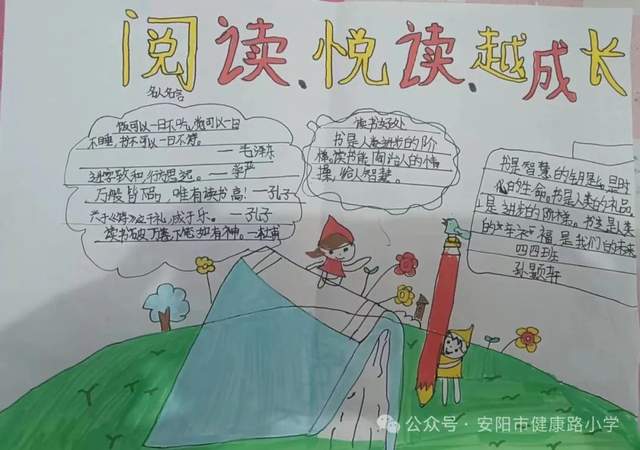 阅读、悦读、越成长
名人名言
饭可以一日不吃,觉可以一日
不睡,书不可以一日不读。
——毛泽东
进学致和,行方思远。——李严
万般皆下品,唯有读书高!——孔子
兴于《诗》,立于礼,成于乐。——孔子
读书破万卷,下笔如有神。——杜甫
读书好处
书是人类进步的阶
梯。读书能陶冶人的情
操,给人智慧。
书是智慧的钥匙,是时
的生命。书是人类的礼品
是进步的阶梯。书是人类
的幸福,是我们的未来
四四班
孙颢轩
公众号·安阳市健康路小学